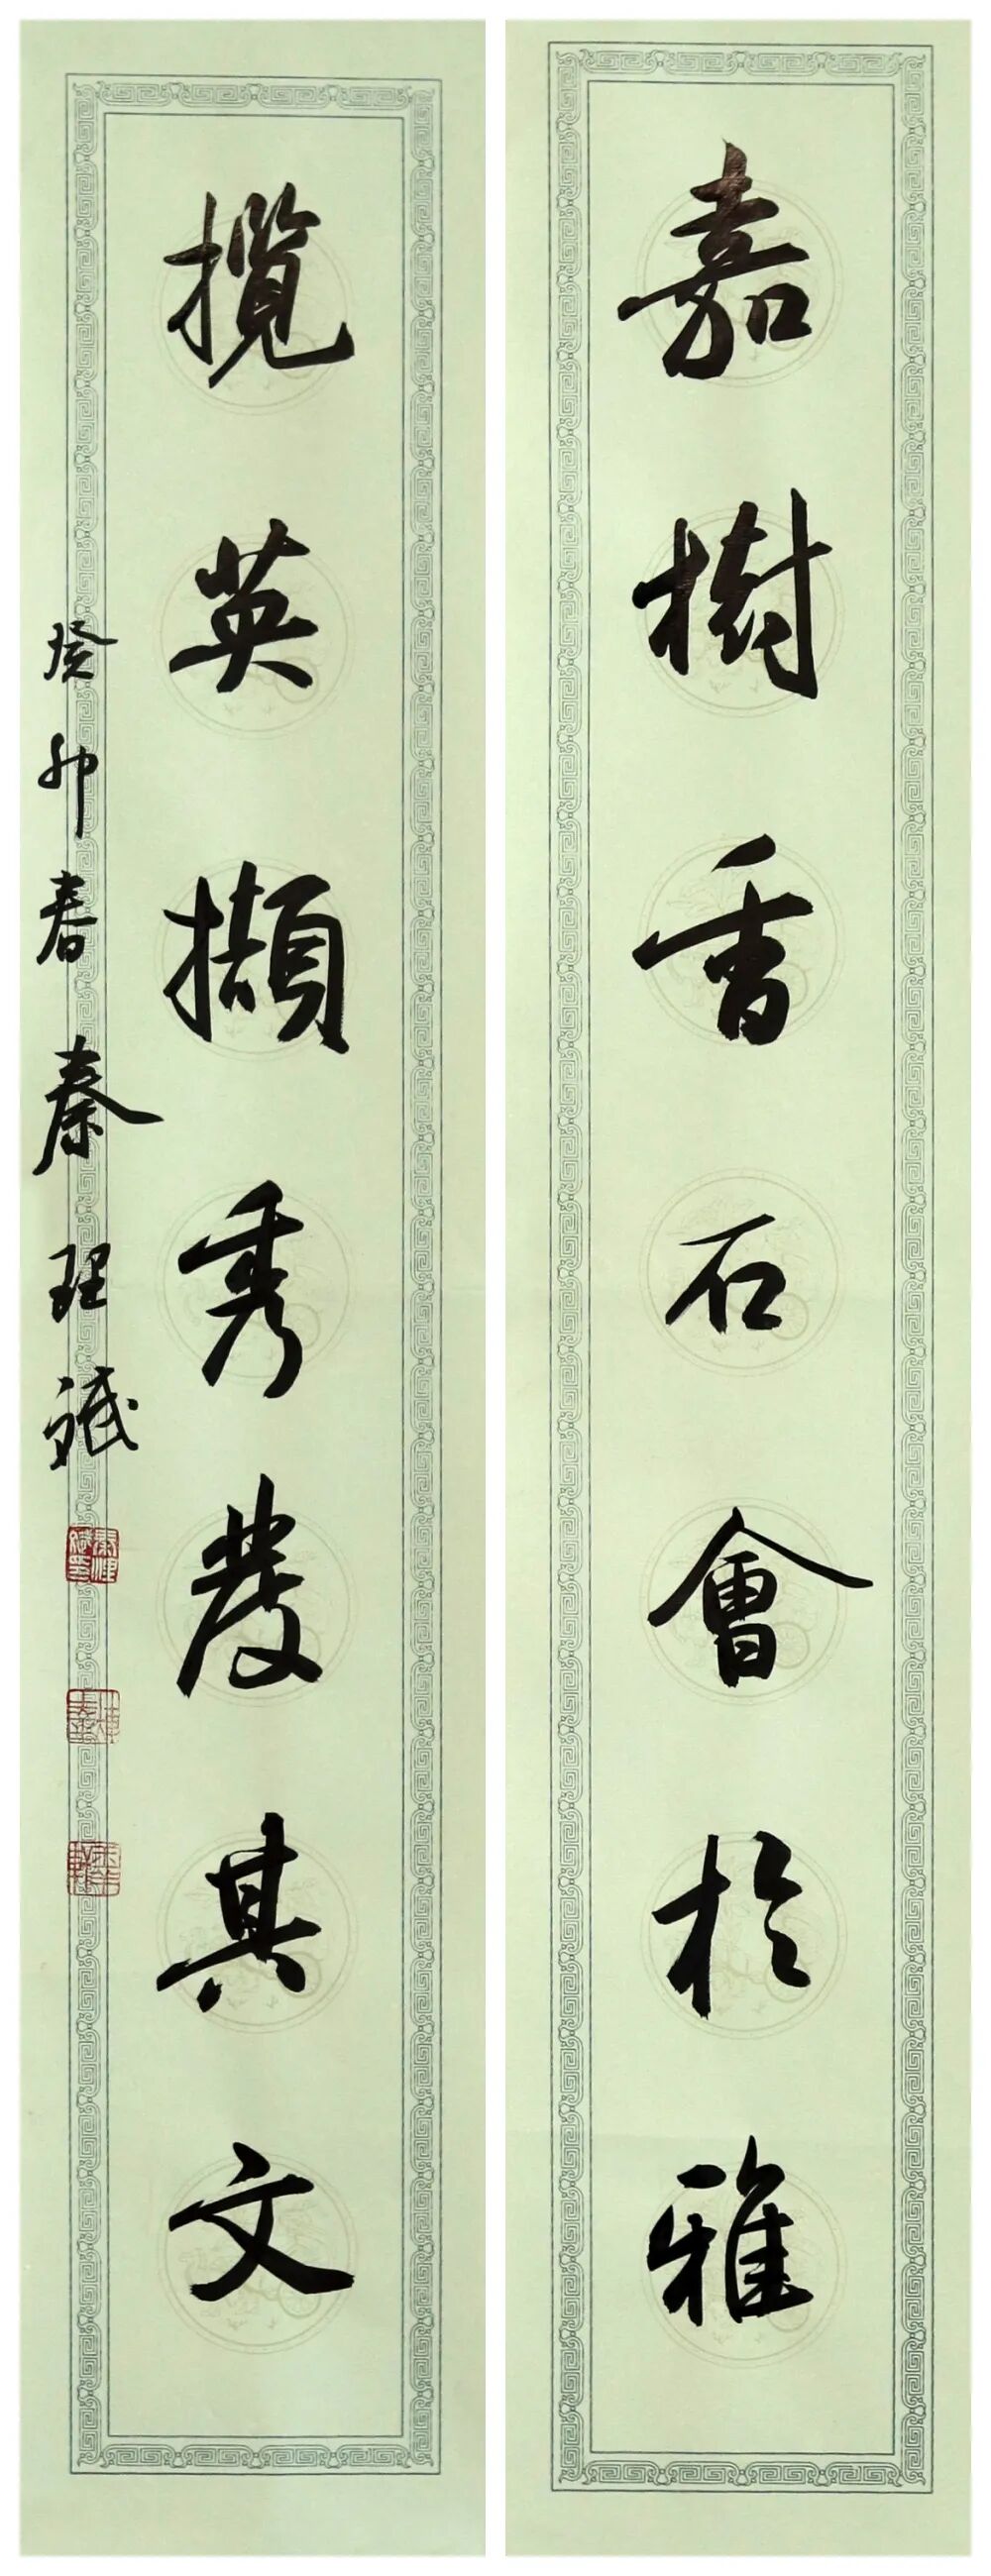 嘉樹香石會於雅
攬英擷秀發其文
癸卯春秦理斌